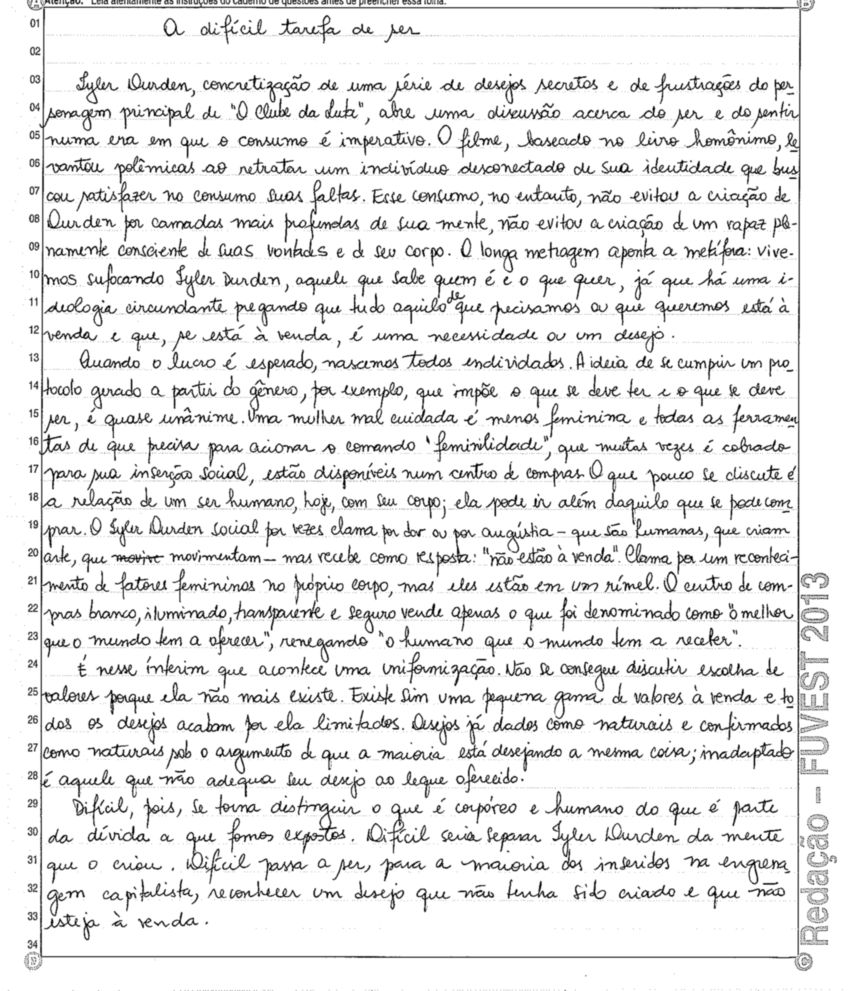 Atenção: Leia atentamente as instruções do caderno de questões antes de preencher essa folha.
01 A difícil tarefa de ser
02
03 Tyler Durden, concretização de uma série de desejos secretos e de frustrações do per-
04 sonagem principal de "O Clube da Luta", abre uma discussão acerca do ser e do sentir
05 numa era em que o consumo é imperativo. O filme, baseado no livro homônimo, le-
06 vantou polêmicas ao retratar um indivíduo desconectado de sua identidade que bus-
07 cou satisfazer no consumo suas faltas. Esse consumo, no entanto, não evitou a criação de
08 Durden por camadas mais profundas de sua mente, não evitou a criação de um rapaz ple-
09 namente consciente de suas vontades e de seu corpo. O longa metragem aponta a metáfora: vive-
10 mos sufocando Tyler Durden, aquele que sabe quem é e o que quer, já que há uma i-
11 deologia circundante pregando que tudo aquilo de que precisamos ou que queremos está à
12 venda e que, se está à venda, é uma necessidade ou um desejo.
13 Quando o lucro é esperado, nascemos todos endividados. A ideia de se cumprir um pro-
14 tocolo gerado a partir do gênero, por exemplo, que impõe o que se deve ter e o que se deve
15 ser, é quase unânime. Uma mulher mal cuidada é menos feminina e todas as ferramen-
16 tas de que precisa para acionar o comando "feminilidade", que muitas vezes é cobrado
17 para sua inserção social, estão disponíveis num centro de compras. O que pouco se discute é
18 a relação de um ser humano, hoje, com seu corpo; ela pode ir além daquilo que se pode com-
19 prar. O Tyler Durden social por vezes clama por dor ou por angústia – que são humanas, que criam
20 arte, que movive movimentam – mas recebe como resposta: "não estão à venda". Clama por um reconheci-
21 mento de fatores femininos no próprio corpo, mas eles estão em um rímel. O centro de com-
22 pras branco, iluminado, transparente e seguro vende apenas o que foi denominado como "o melhor
23 que o mundo tem a oferecer", renegando "o humano que o mundo tem a receber".
24 É nesse ínterim que acontece uma uniformização. Não se consegue discutir escolha de
25 valores porque ela não mais existe. Existe sim uma pequena gama de valores à venda e to-
26 dos os desejos acabam por ela limitados. Desejos já dados como naturais e confirmados
27 como naturais sob o argumento de que a maioria está desejando a mesma coisa; inadaptado
28 é aquele que não adequa seu desejo ao leque oferecido.
29 Difícil, pois, se torna distinguir o que é corpóreo e humano do que é parte
30 da dívida a que fomos expostos. Difícil seria separar Tyler Durden da mente
31 que o criou. Difícil passa a ser, para a maioria dos inseridos na engrena-
32 gem capitalista, reconhecer um desejo que não tenha sido criado e que não
33 esteja à venda.
34
Redação – FUVEST 2013